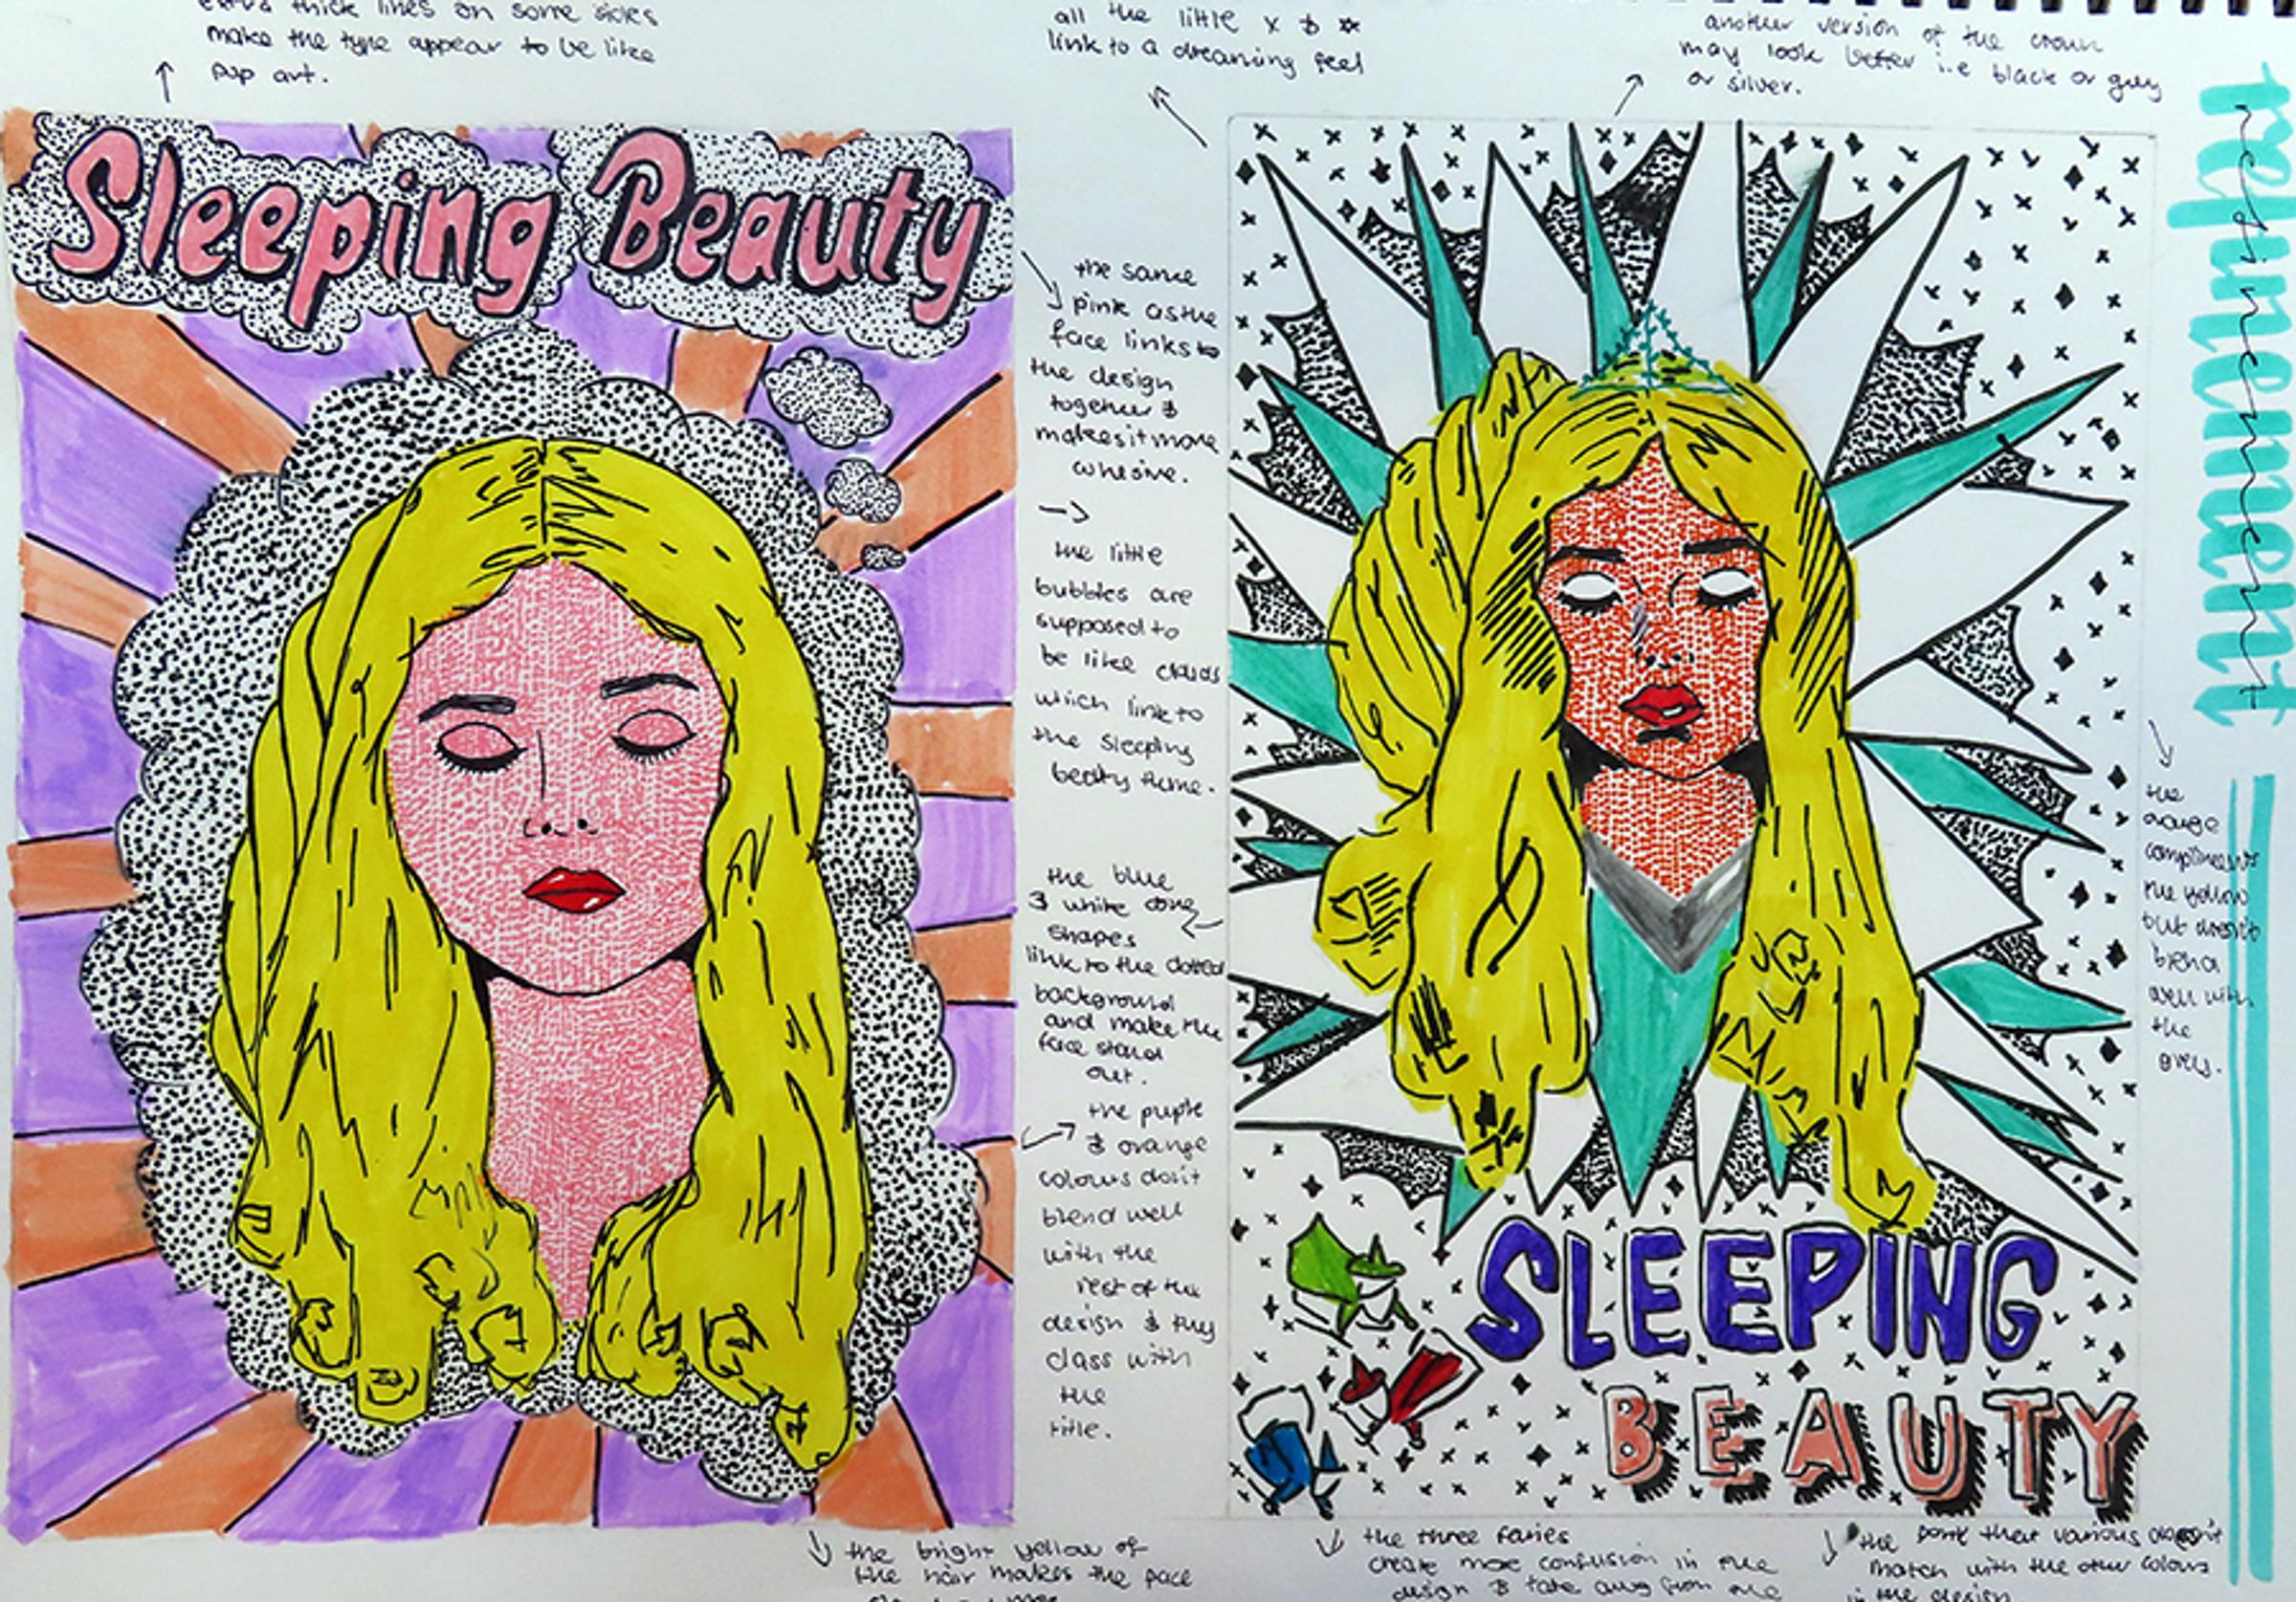 extra thick lines on some sides
make the type appear to be like
pop art.
all the little x & ☆
link to a dreaming feel
another version of the crown
may look better i.e black or grey
or silver.
refinement
refinement
Sleeping Beauty
the same
pink as the
face links to
the design
together &
makes it more
cohesive.
the little
bubbles are
supposed to
be like clouds
which link to
the sleeping
beauty theme.
the blue
& white cone
shapes
link to the dotted
background
and make the
face stand
out.
the purple
& orange
colours don't
blend well
with the
rest of the
design & they
class with
the
title.
the
orange
compliments
the yellow
but doesn't
blend
well with
the
grey.
SLEEPING
BEAUTY
the bright yellow of
the hair makes the face
the three faries
create more confusion in the
design & take away from the
the font that various doesn't
match with the other colours
in the design